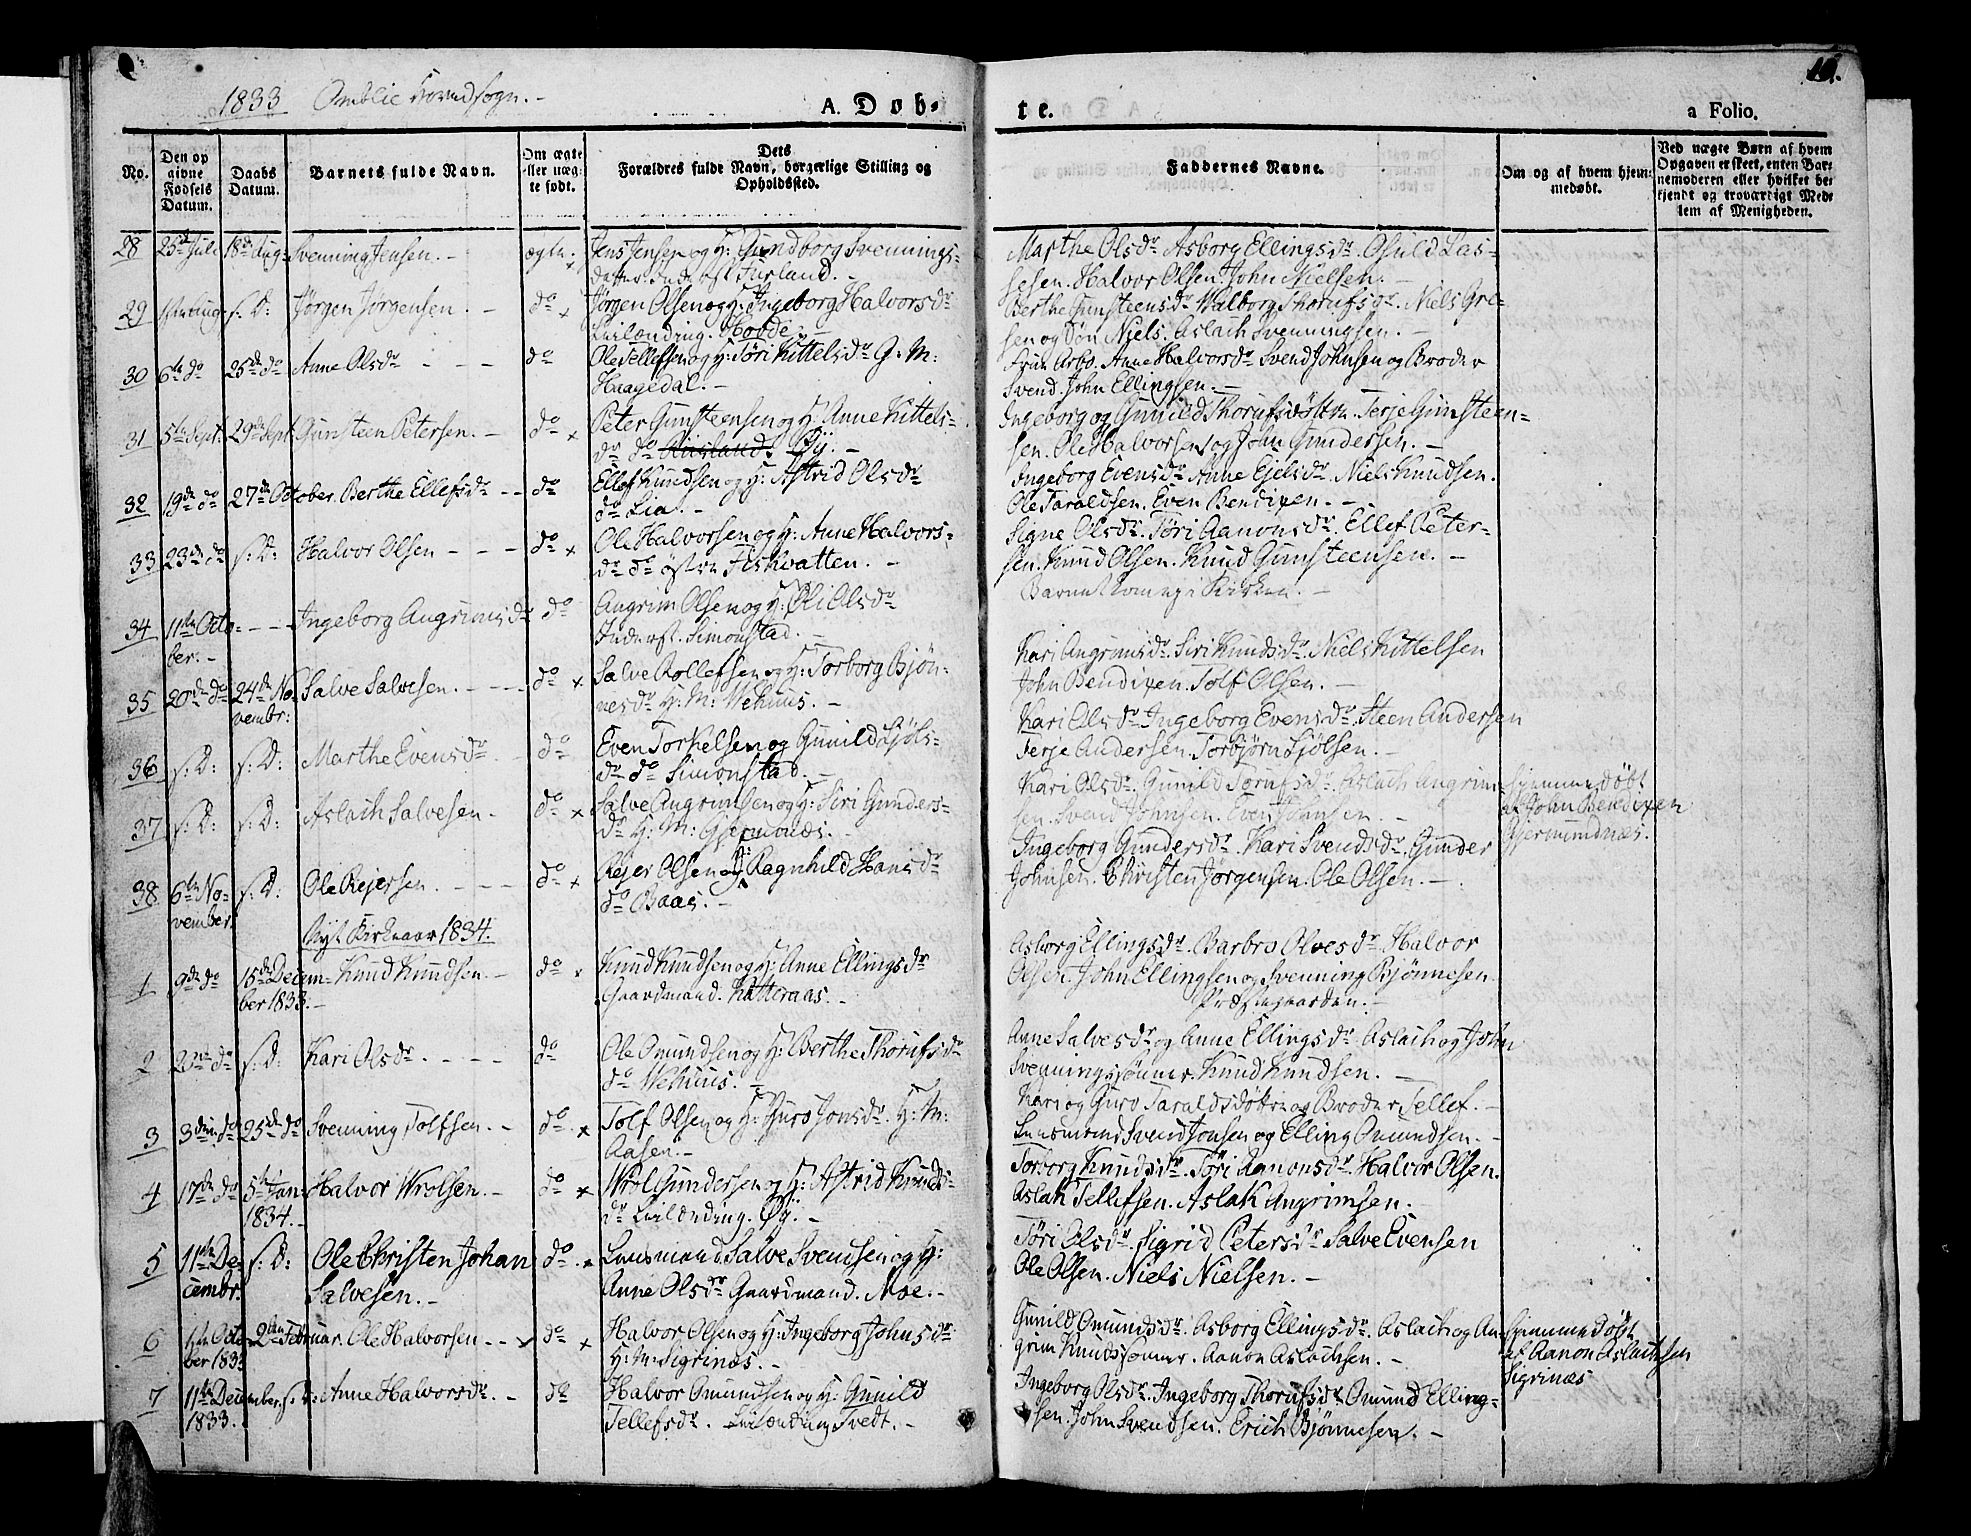 1833 Omblie Hovedsogn. -
A. Døb-
te.
a Folio.
10.
No.
Den op
givne
Fødsels
Datum.
Daabs
Datum.
Barnets fulde Navn.
Om ægte
eller uæg-
te født.
Dets
Forældres fulde Navn, borgerlige Stilling og
Opholdssted.
Faddernes Navne.
Om og af hvem hjem-
medøbt.
Ved uægte Børn af hvem
Opgaven er skeet, enten Bar-
nemoderen eller hvilket be-
kjendt og troværdigt Med-
lem af Menigheden.
28 25de Juli 18de Aug: Svenning Jensen. - ægte. × Jens Jensen og H: Gundborg Svennings-
datter. Inderst Furland. -
Marthe Olsdr Asborg Ellingsdr. Osuld Las-
sesen. Halvor Olsen. John Nielsen. -
29 s: D: Jørgen Jørgensen. - do × Jørgen Olsen og H: Ingeborg Halvorsdr
Leilænding. Hobde -
Berthe Gunsteensdr Walborg Thorufsdr. Niels Gre-
sen og Søn Niels. Aslach Svenningsen. -
30 6te do 25de do Anne Olsdr - - - do Ole Tellefsen og H: Töri Kittelsdr G: M:
Haagedal. -
Anne Halvorsdr Svend Johnsen og Broder
Svend. John Ellingsen. -
31 5te Sept: 29de Sept. Gunsteen Petersen. - do × Peter Gunsteensen og H: Anne Kittels-
dr do Øÿ. -
Ingeborg og Gunild Thorufsdøttre. Terje Gunsteen-
sen. Ole Halvorsen og John Gundersen. -
32 19de do 27de October. Berthe Ellefsdr - - do Ellef Knudsen og H: Astrid Olsdr
do Lia. -
Ingeborg Evensdr Anne Ejelsdr. Niels Knudsen.
Ole Taraldsen. Even Bendixen. -
33 23de do s: D: Halvor Olsen - - - do × Ole Halvorsen og H: Anne Halvors-
dr do østre Fiskvatten. -
Signe Olsdr. Töri Aanonsdr. Ellef Peter-
sen. Knud Olsen. Knud Gunsteensen. -
34 11te Octo-
ber. - - - Ingeborg Angrimsdr do Angrim Olsen og H: Oli Olsdr
Inderst. Simonstad. -
Barnet kom ej i Kirken. -
35 20de do 24de No-
vembr: Salve Salvesen. - - - do × Salve Rollefsen og H: Torborg Bjøn-
nesdr H: M: Wehuus. -
Kari Angrimsdr. Siri Knudsdr. Niels Kittelsen
John Bendixen. Tolf Olsen. -
36 s: D: s: D: Marthe Evensdr - do Even Torkelsen og Gunild Ljöls-
dr do Simonstad. -
Kari Olsdr Ingeborg Evensdr. Steen Andersen
Terje Andersen. Torbjørn Ljølsen. -
37 s: D: s: D: Aslach Salvesen - do × Salve Angrimsen og H: Siri Gunders-
dr H: M: Gjermones. -
Kari Olsdr. Gunild Torufsdr. Aslach Angrim-
sen. Svend Johnsen. Even Johnsen. -
hjemmedøbt
af John Bendixen
Gjermundnæs.
38 6te No-
vember. s: D: Ole Rejersen. - - - do × Rejer Olsen og H: Ragnhild Hansdr
do Baas. -
Ingeborg Gundersdr. Kari Svendsdr. Gunder
Johnsen. Christen Jørgensen. Ole Olsen. -
Nyt Kirkeaar 1834.
1 9de do 15de Decem-
ber 1833. - Knud Knudsen. - do × Knud Knudsen og H: Anne Ellingsdr
Gaardmand. Katteraas. -
Asborg Ellingsdr. Barbro Olvesdr. Halvor
Olsen. John Ellingsen og Svenning Bjønnesen.
Præstegaarden. -
2 do s: D: Kari Olsdr. - - - do Ole Omundsen og H: Berthe Thorufsdr
do Wehuus. -
Anne Salvesdr og Anne Ellingsdr. Aslach og John
Svenningssønner. Knud Knudsen. -
3 3die do 25de do Svenning Tolfsen. - do × Tolf Olsen og H: Guro Jonsdr. H: M:
Aasen. -
Kari og Guro Taraldsdøtre og Broder Tellef. -
Lensmand Svend Jonsen og Elling Omundsen. -
4 17de do 5te Jan:
1834. - Halvor Wrolsen. - do × Wrol Gundersen og H: Astrid Knuds-
dr Leilænding. Øÿ. -
Torborg Knudsdr. Töri Aanonsdr. Halvor Olsen.
Aslak Tellefsen. Aslak Angrimsen. -
5 11te De-
cembr. s: D: Ole Christen Johan
Salvesen. - do × Lensmand Salve Svendsen og H:
Anne Olsdr Gaardmand. Moe. -
Töri Olsdr. Sigrid Petersdr Salve Evensen
Ole Olsen. Niels Nielsen. -
6 1ste Octo-
ber 1833 2den Februar. Ole Halvorsen - - do × Halvor Olsen og H: Ingeborg Johnsdr
H: M: Sigrinæs. -
Gunild Omundsdr. Asborg Ellingsdr. Aslach og An-
grim Knudssønner. Aanon Aslachsen. -
hjemmedøbt
af Aanon Aslachsen
Sigrinæs
7 11te December
1833. s: D: Anne Halvorsdr. - do Halvor Omundsen og H: Gunild
Tellefsdr. Leilænding Svedt. -
Ingeborg Olsdr. Ingeborg Thorufsdr Omund Elling-
sen. John Svendsen. Erich Bjønnesen. -